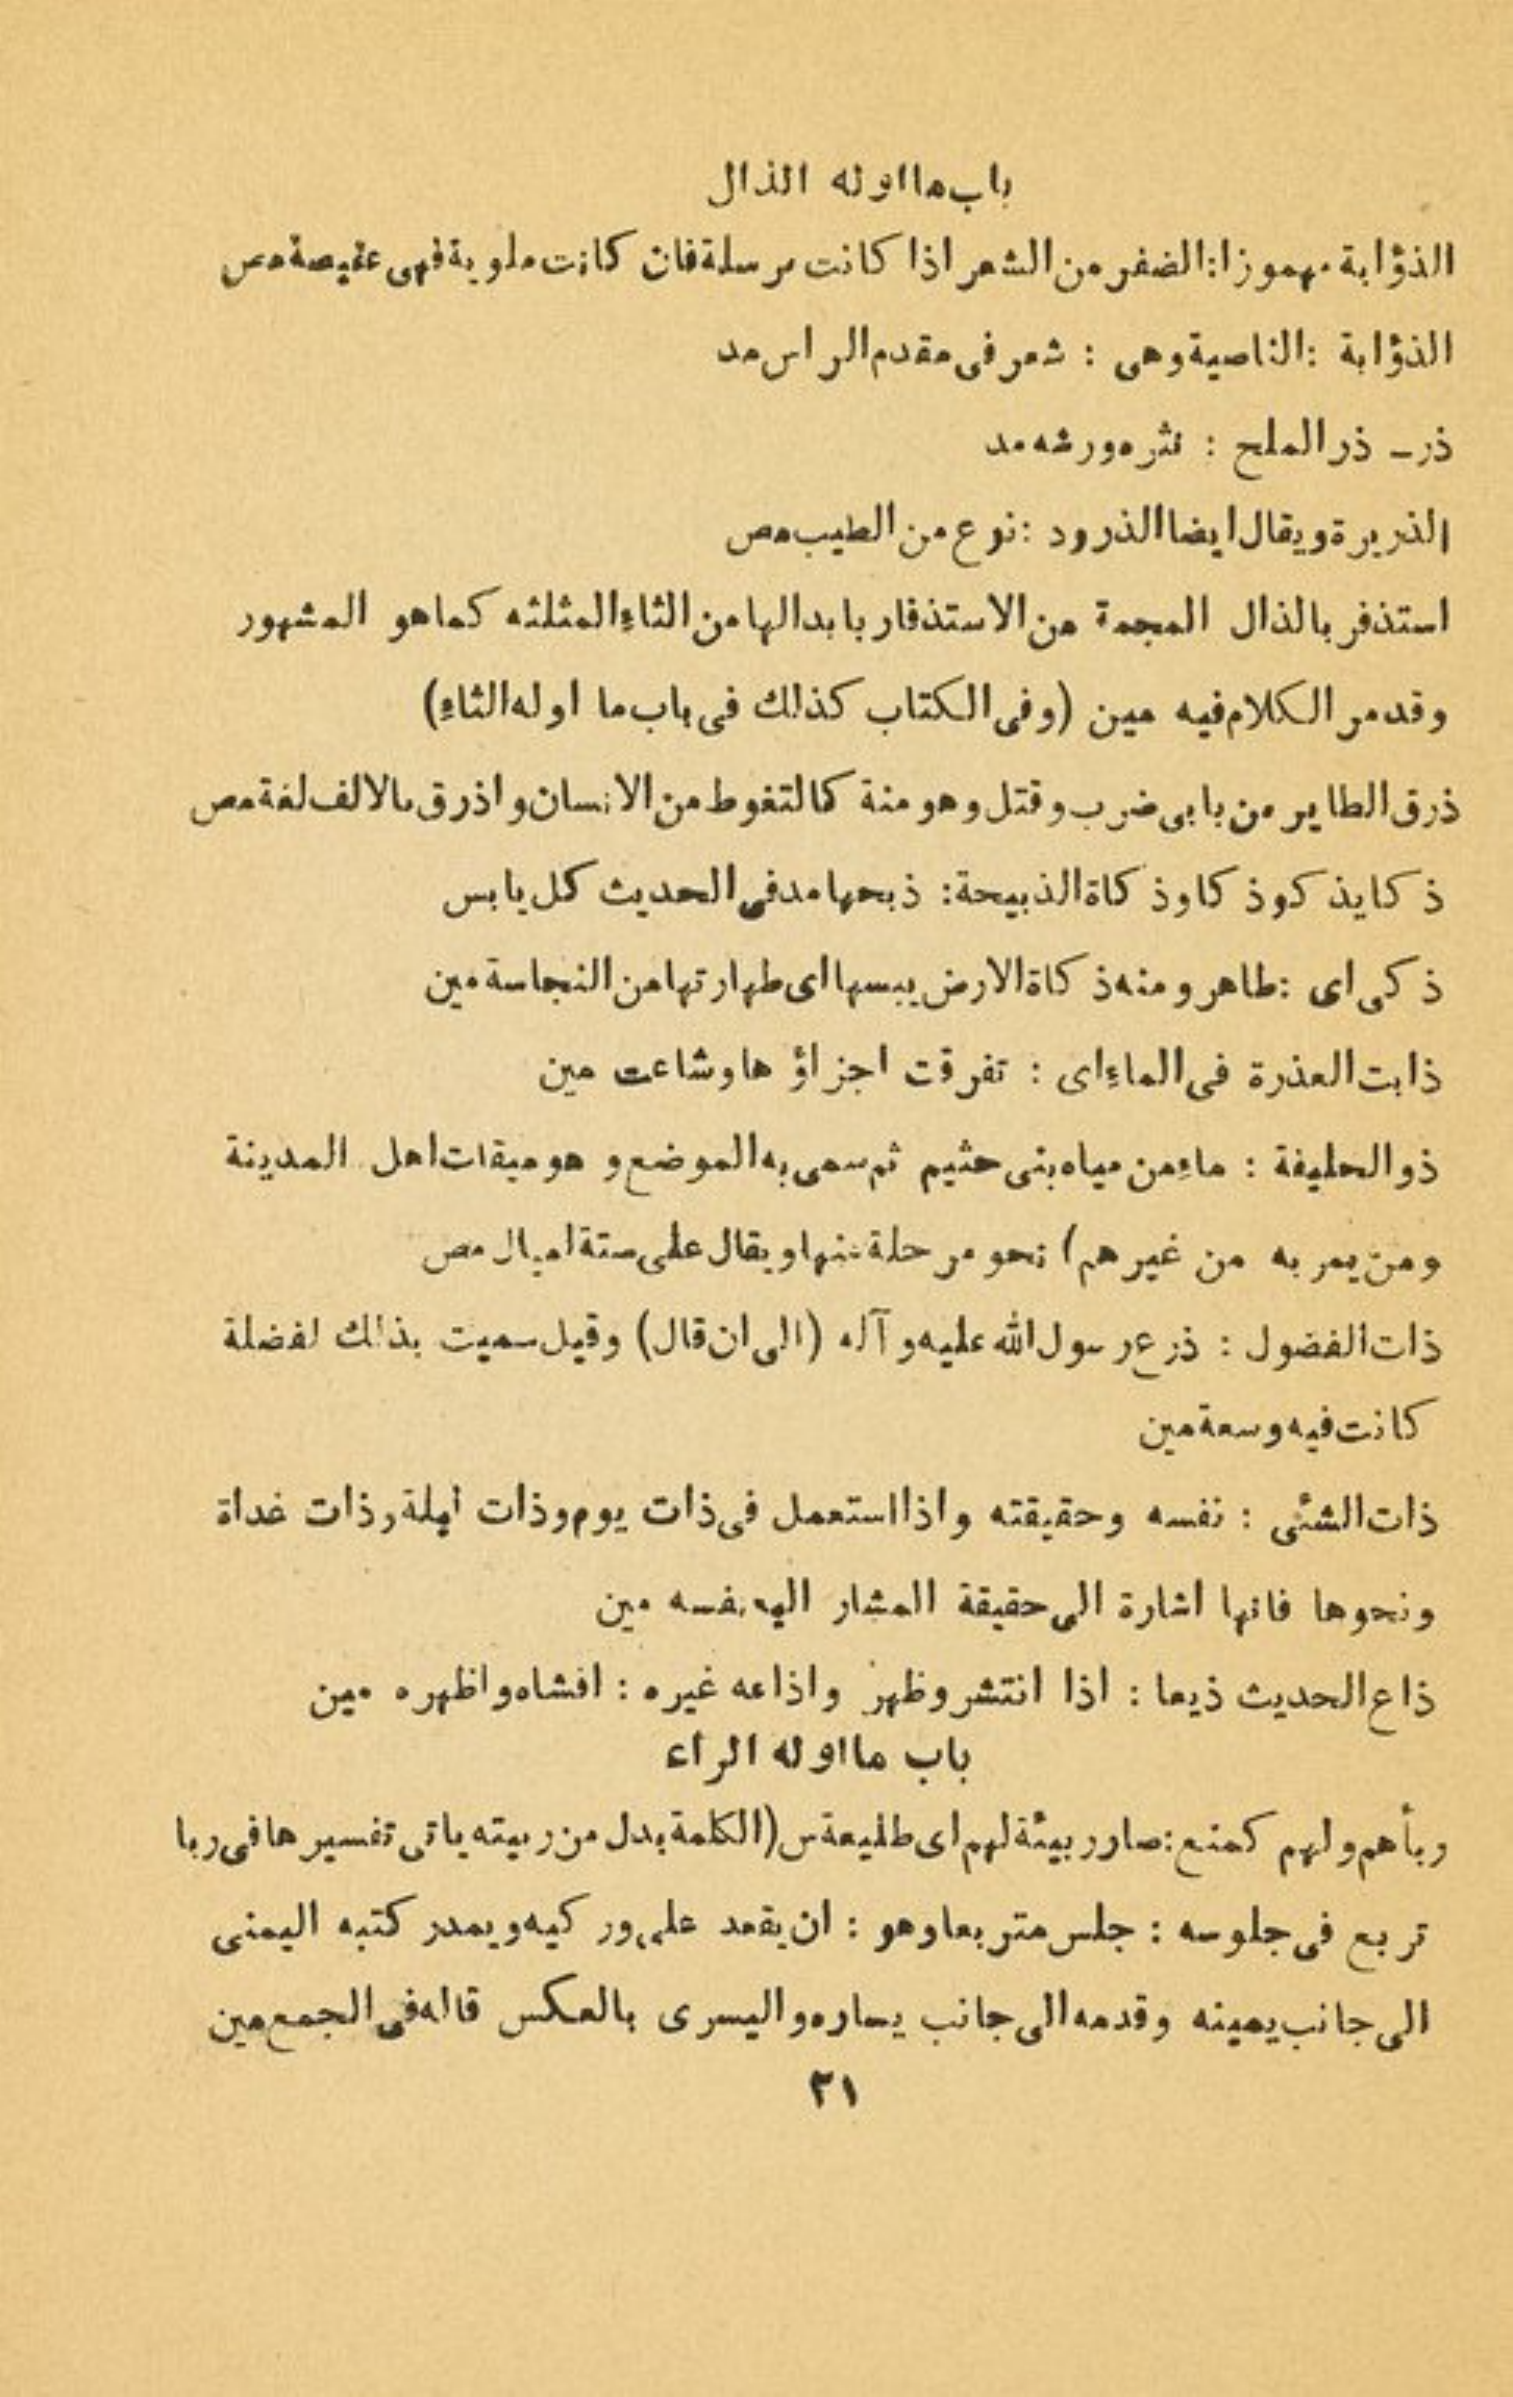 باب ما اوله الذال
الذؤابة مهموزا: الضفر من الشعر اذا كانت مرسلة فان كانت ملوية فهى عقيصة مص
الذؤابة : الناصية وهى : شعر فى مقدم الراس مد
ذر ـ ذر الملح : نثره ورشه مد
الذريرة ويقال ايضا الذرود : نوع من الطيب مص
استذفر بالذال المعجمة من الاستذفار بابدالها من الثاءِ المثلثه كما هو المشهور
وقد مر الكلام فيه مين (وفى الكتاب كذلك فى باب ما اوله الثاءِ)
ذرق الطاير من بابى ضرب وقتل وهو منة كالتغوط من الانسان واذرق بالالف لغة مص
ذكا يذكو ذكا وذكاة الذبيحة: ذبحها مد فى الحديث كل يابس
ذكى اى : طاهر ومنه ذكاة الارض يبسها اى طهارتها من النجاسة مين
ذابت العذرة فى الماءِ اى : تفرقت اجزاؤها وشاعت مين
ذو الحليفة : ماءِ من مياه بنى حثيم ثم سمى به الموضع و هو ميقات اهل المدينة
ومن يمر به من غيرهم) نحو مرحلة عنها ويقال على ستة اميال مص
ذات الفضول : ذرع رسول الله عليه و آله (الى ان قال) وقيل سميت بذلك لفضلة
كانت فيه وسعة مين
ذات الشئى : نفسه وحقيقته واذا استعمل فى ذات يوم وذات ليلة وذات غداة
ونحوها فانها اشارة الى حقيقة المشار اليه نفسه مين
ذاع الحديث ذيعا : اذا انتشر وظهر واذاعه غيره : افشاه واظهره مين
باب ما اوله الراء
ربأهم ولهم كمنع: صار ربيئة لهم اى طليعة س (الكلمة بدل من ربيته ياتى تفسيرها فى ربا
تربع فى جلوسه : جلس متربعا وهو : ان يقعد على وركيه ويمد ركبته اليمنى
الى جانب يمينه وقدمه الى جانب يساره واليسرى بالعكس قاله فى الجمع مين
٢١